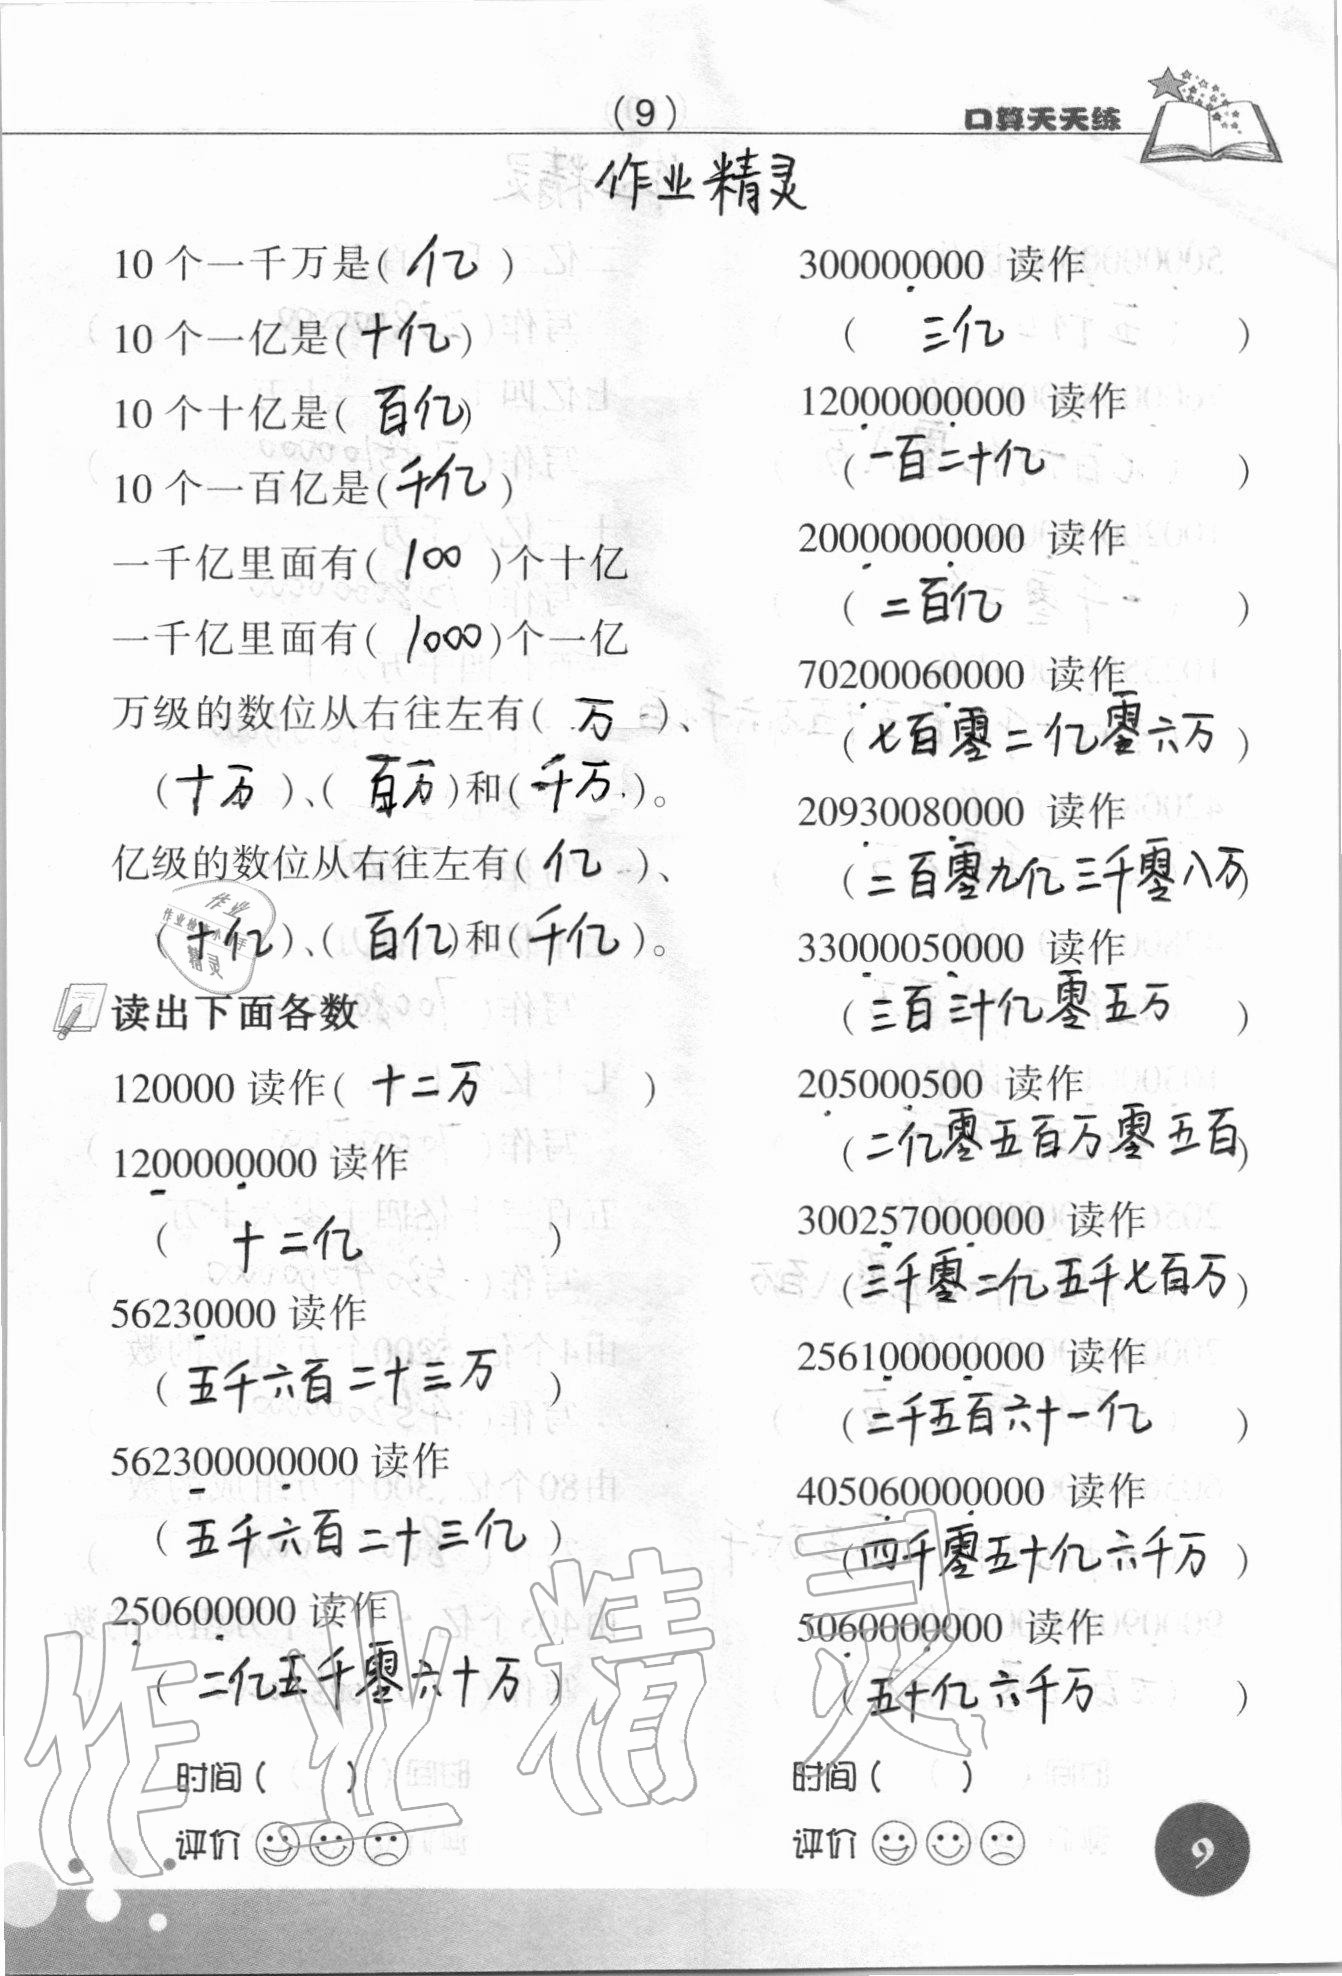 (9)
口算天天练
作业精灵
10个一千万是( 亿 )
10个一亿是(十亿)
10个十亿是( 百亿)
10个一百亿是(千亿 )
一千亿里面有( 100 )个十亿
一千亿里面有( 1000)个一亿
万级的数位从右往左有( 万 )、
(十万 )、( 百万)和( 千万 )。
亿级的数位从右往左有( 亿 )、
( 十亿 )、( 百亿)和(千亿 )。
读出下面各数
120000 读作( 十二万 )
1200000000 读作
( 十二亿 )
56230000 读作
( 五千六百二十三万 )
562300000000 读作
( 五千六百二十三亿 )
250600000 读作
( 二亿五千零六十万 )
时间( )
评价
300000000 读作
( 三亿 )
12000000000 读作
( 一百二十亿 )
20000000000 读作
( 二百亿 )
70200060000 读作
( 七百零二亿零六万 )
20930080000 读作
( 二百零九亿三千零八万)
33000050000 读作
( 三百三十亿零五万 )
205000500 读作
( 二亿零五百万零五百)
300257000000 读作
( 三千零二亿五千七百万 )
256100000000 读作
( 二千五百六十一亿 )
405060000000 读作
( 四千零五十亿六千万 )
5060000000 读作
( 五十亿六千万 )
时间( )
评价
作业
精灵
作业精灵
9